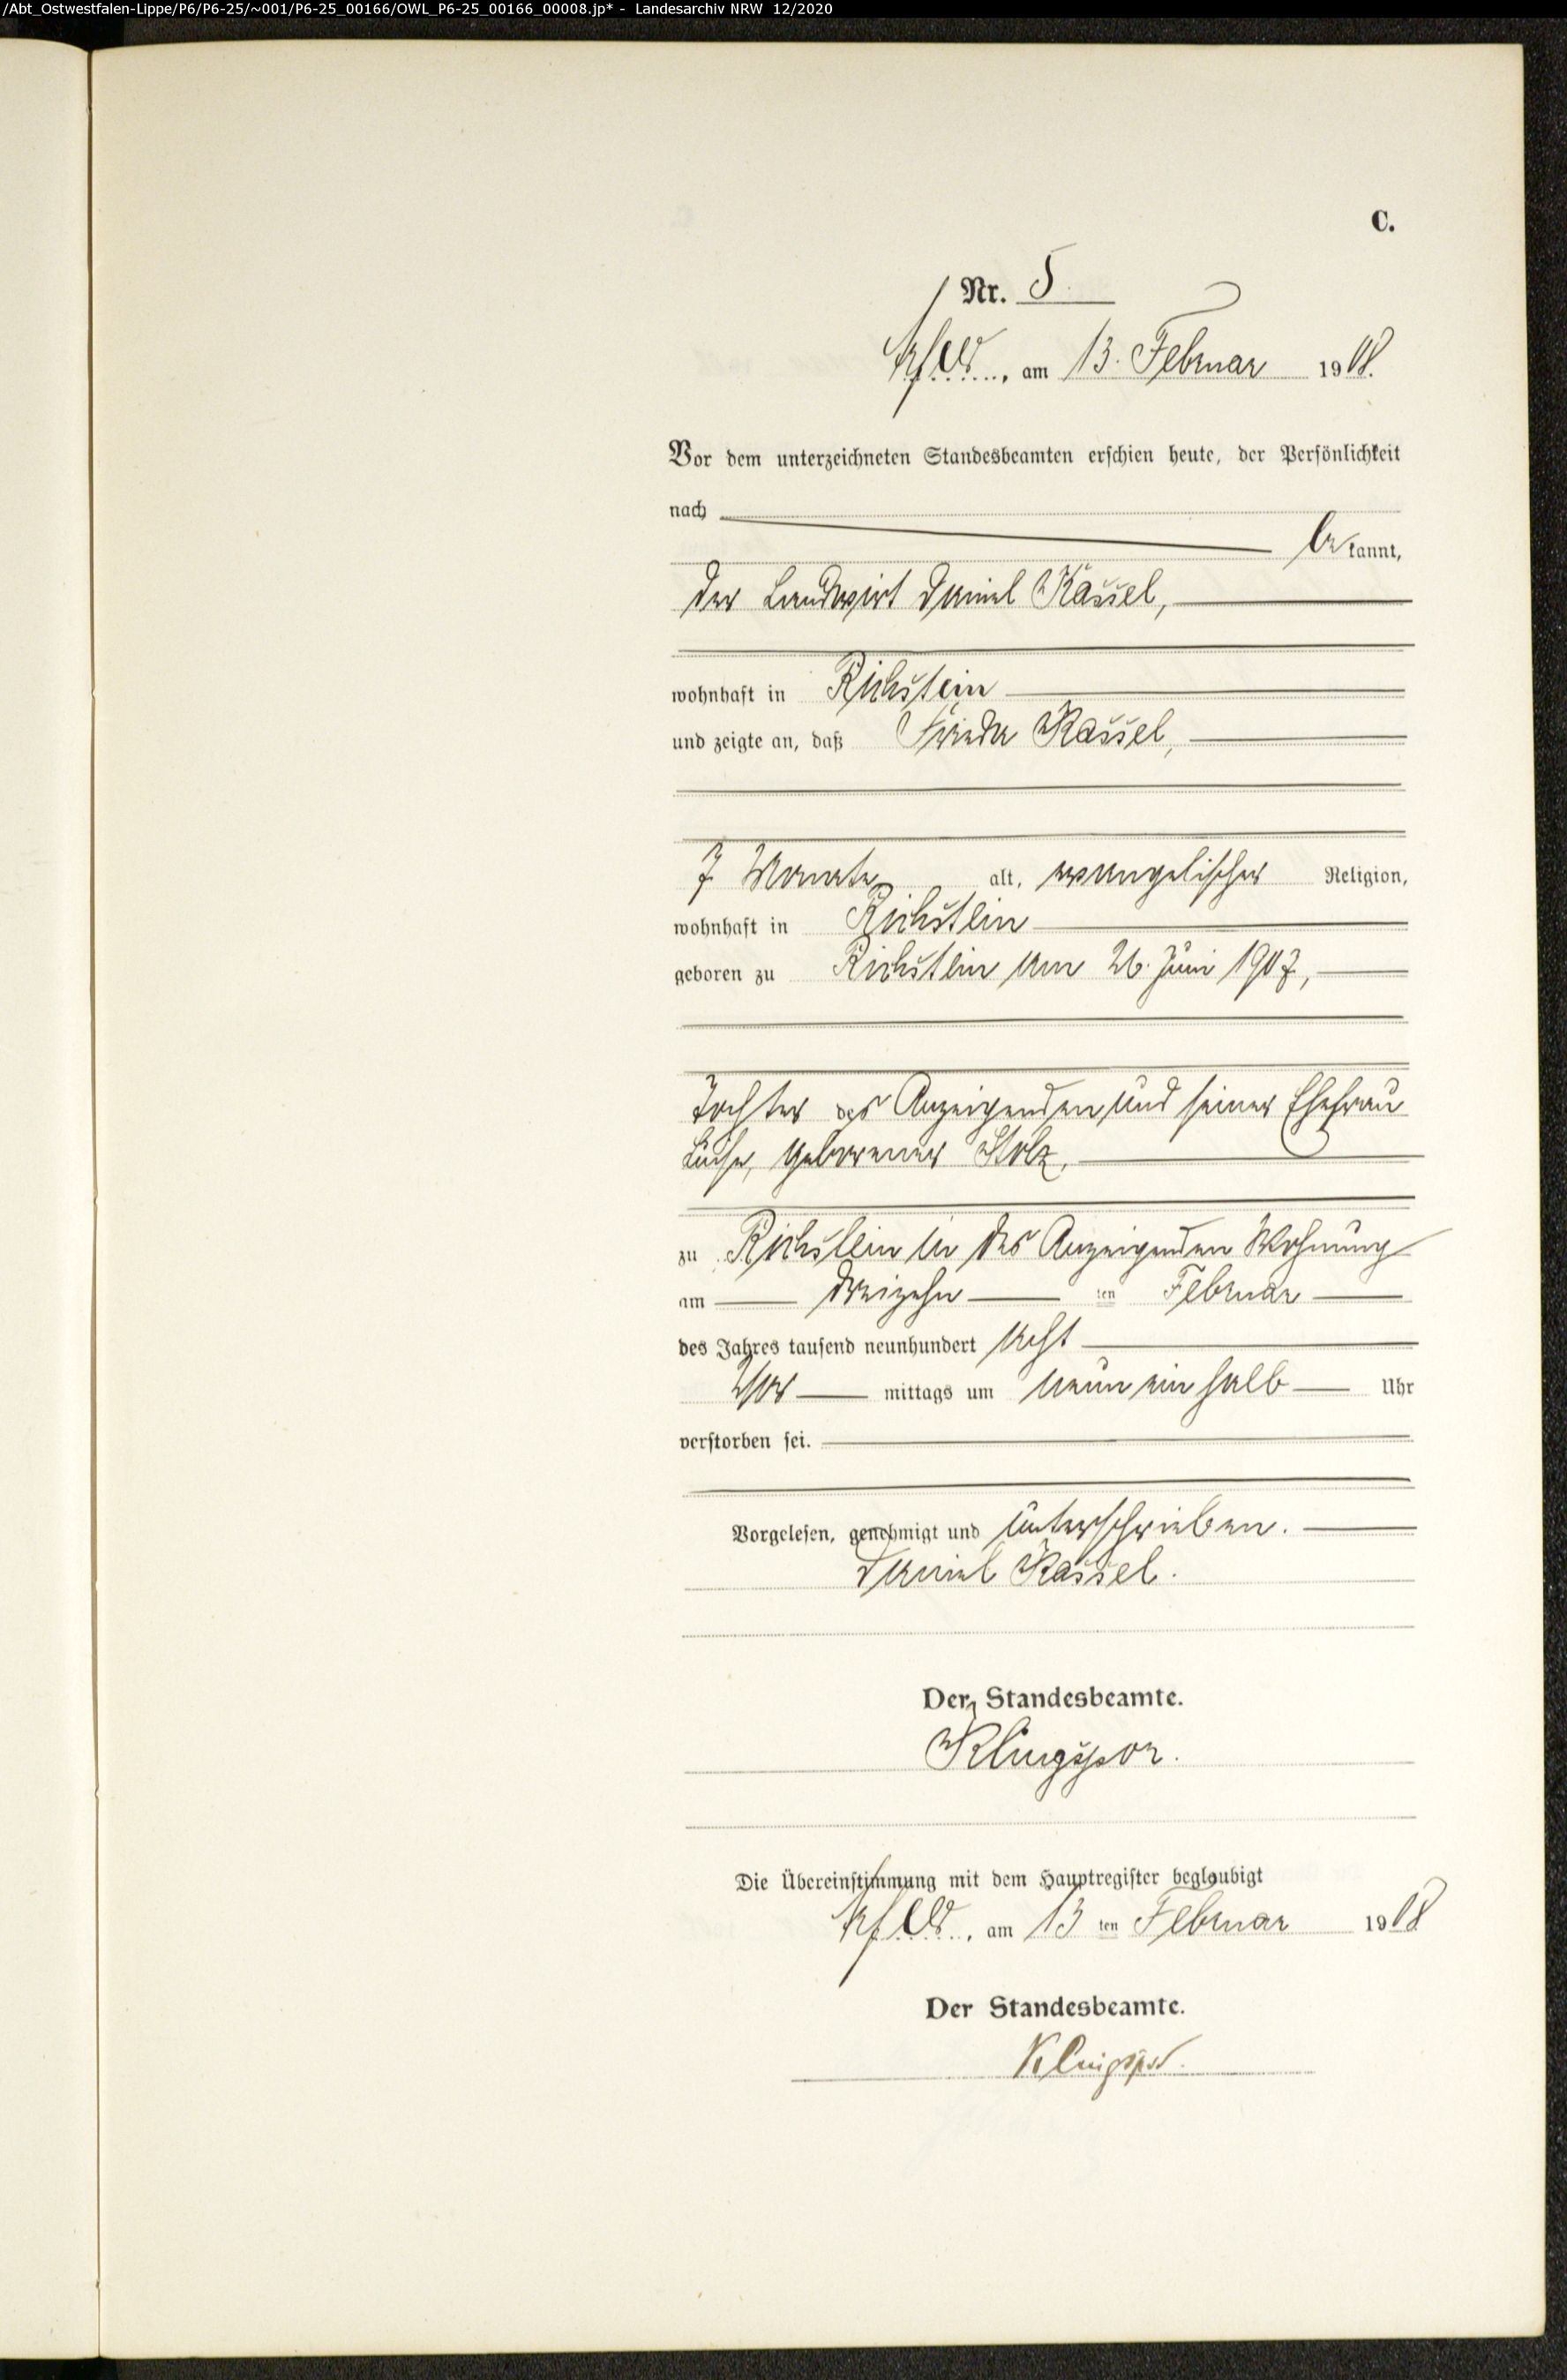 /Abt_Ostwestfalen-Lippe/P6/P6-25/~001/P6-25_00166/OWL_P6-25_00166_00008.jp* - Landesarchiv NRW 12/2020
C.
Nr. 5.
Arfeld, am 13. Februar 1908.
Vor dem unterzeichneten Standesbeamten erschien heute, der Persönlichkeit
nach
bekannt,
der Landwirt Daniel Kassel,
wohnhaft in Richstein
und zeigte an, daß Frieda Kassel,
7 Monate alt, evangelischer Religion,
wohnhaft in Richstein
geboren zu Richstein am 26. Juni 1907,
Tochter des Anzeigenden und seiner Ehefrau
Luise, geborener Stolz,
zu Richstein in des Anzeigenden Wohnung
am dreizehn ten Februar
des Jahres tausend neunhundert acht
Vor mittags um neun ein halb Uhr
verstorben sei.
Vorgelesen, genehmigt und unterschrieben.
Daniel Kassel.
Der Standesbeamte.
Klingspor.
Die Übereinstimmung mit dem Hauptregister beglaubigt
Arfeld, am 13 ten Februar 1908
Der Standesbeamte.
Klingspor.